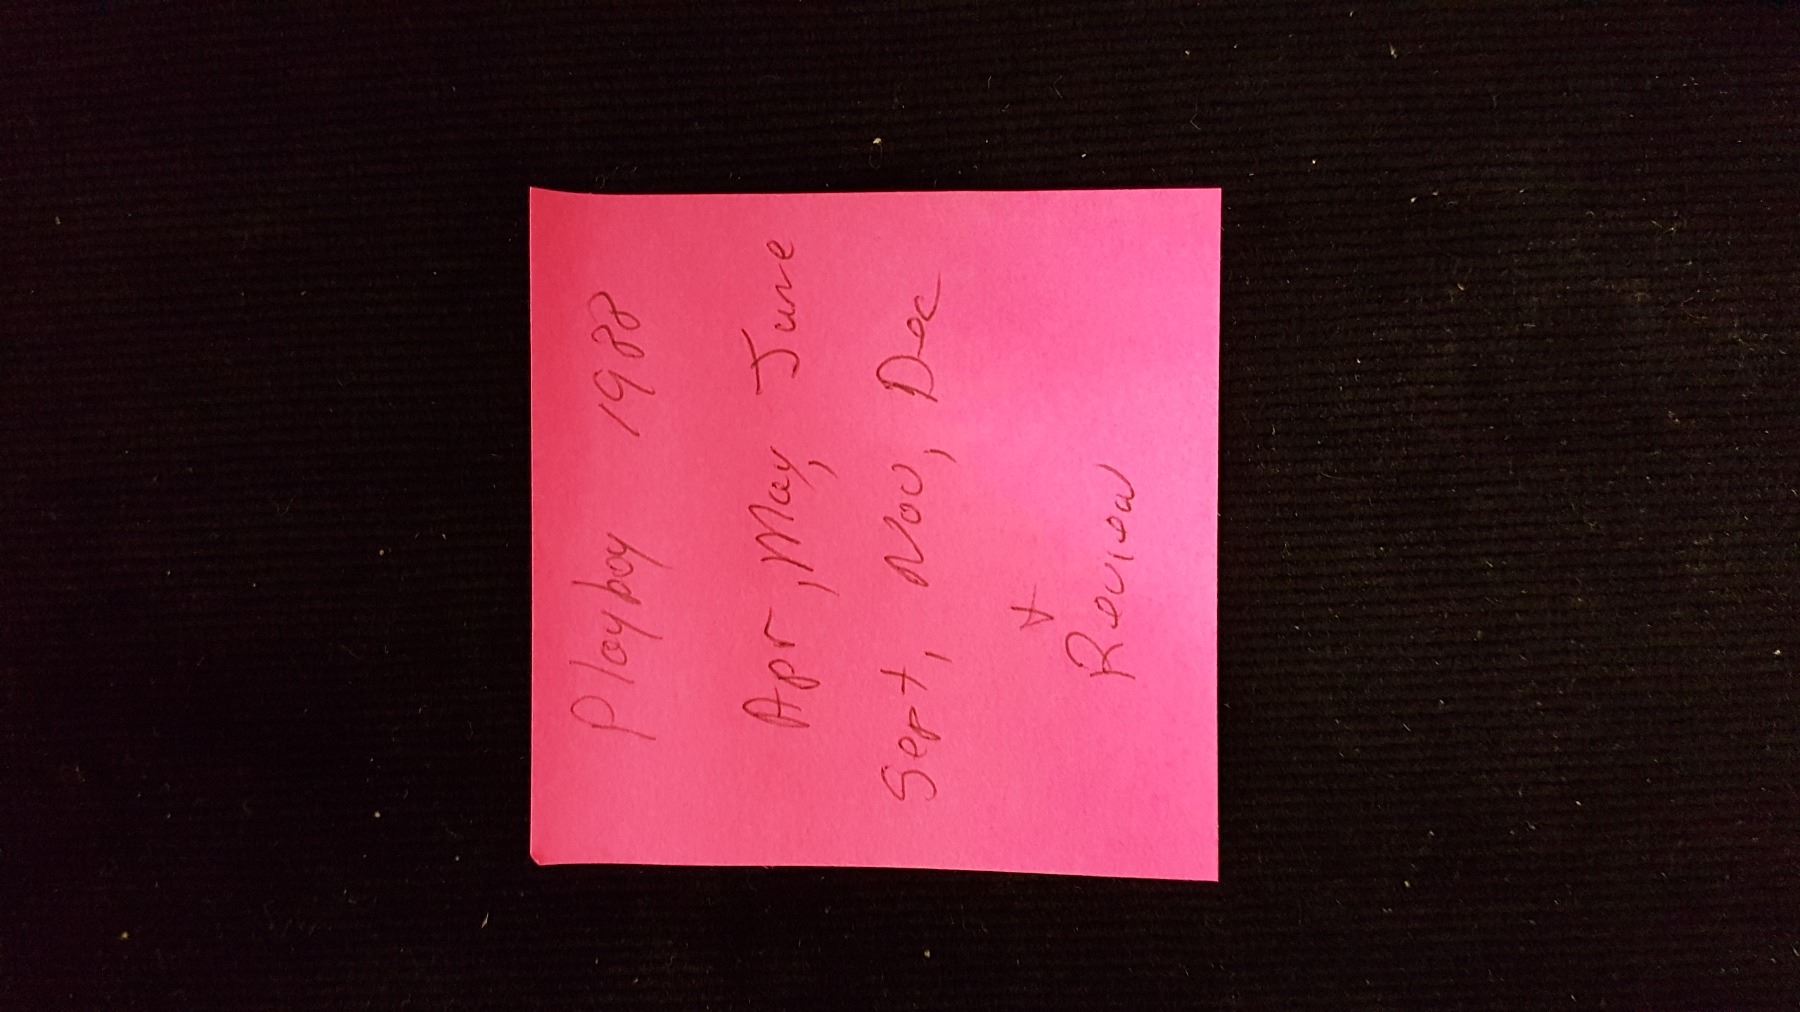 Playboy 1988
Apr, May, June
Sept, Nov, Dec
+
Review